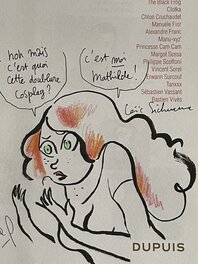 The Black Frog
Clotka
Chloé Cruchaudet
Manuele Fior
Alexandre Franc
Manu-xyz
Princesse Cam Cam
Margot Scesa
Philippe Scoffoni
Vincent Sorel
Erwann Surcouf
Tanxxx
Sébastien Vassant
Bastien Vivès
noh mais
c'est quoi
cette doublure
cosplay ?
c'est moi
Mathilde !
Loïc Sécheresse
DUPUIS